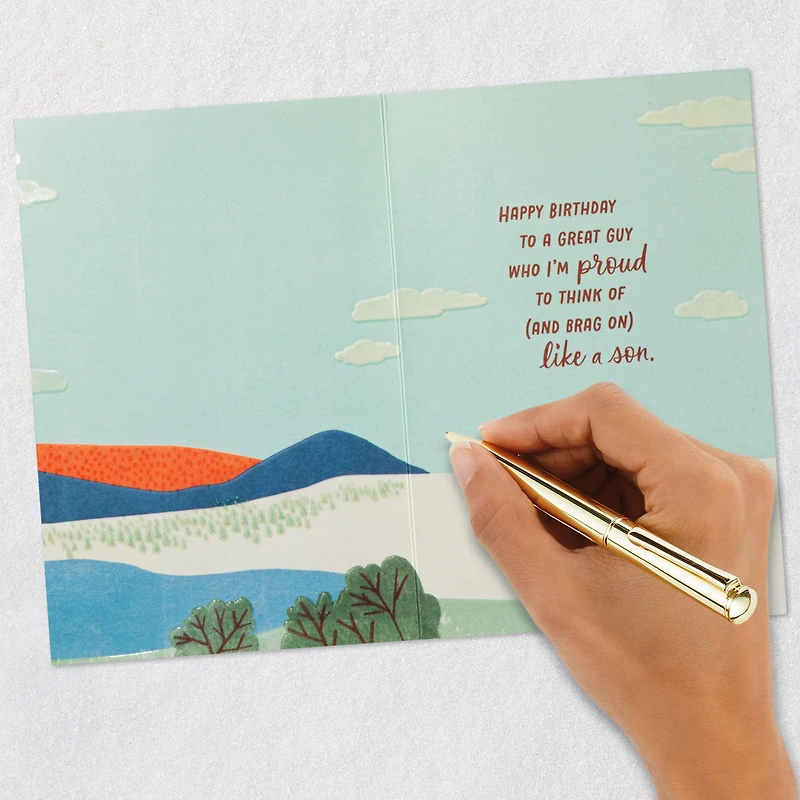 HAPPY BIRTHDAY
TO A GREAT GUY
WHO I'M proud
TO THINK OF
(AND BRAG ON)
like a son.